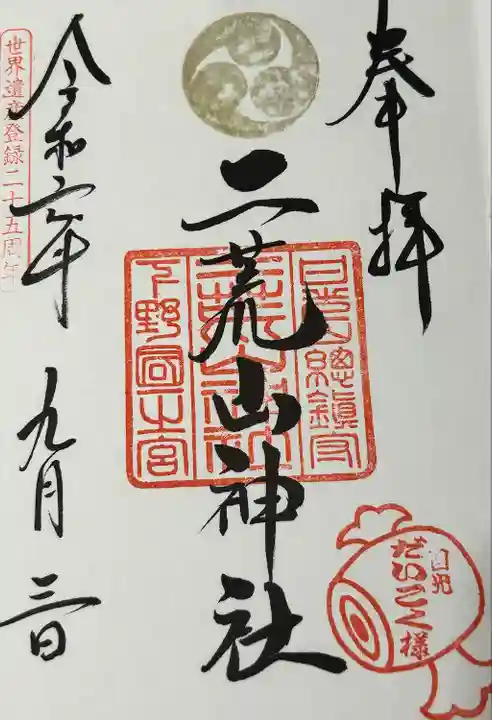 奉拝
日光山總鎮守
二荒山神社
二荒山神社
下野國一之宮
令和六年 九月 三日
世界遺産登録二十五周年
日光
だいこく様